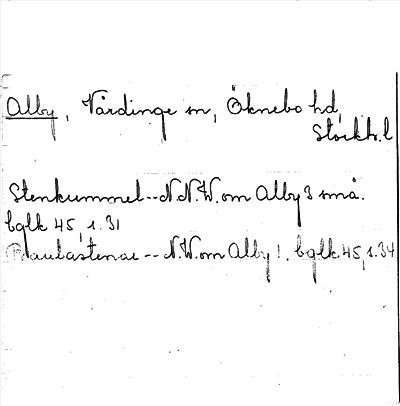 Alby, Vårdinge sn, Öknebo hd,
Stockh. l
Stenkummel -- N.N.W. om Alby 3 små.
bglk 45, s. 31
Baulastenar -- N.W. om Alby 1. bglk 45, s. 34